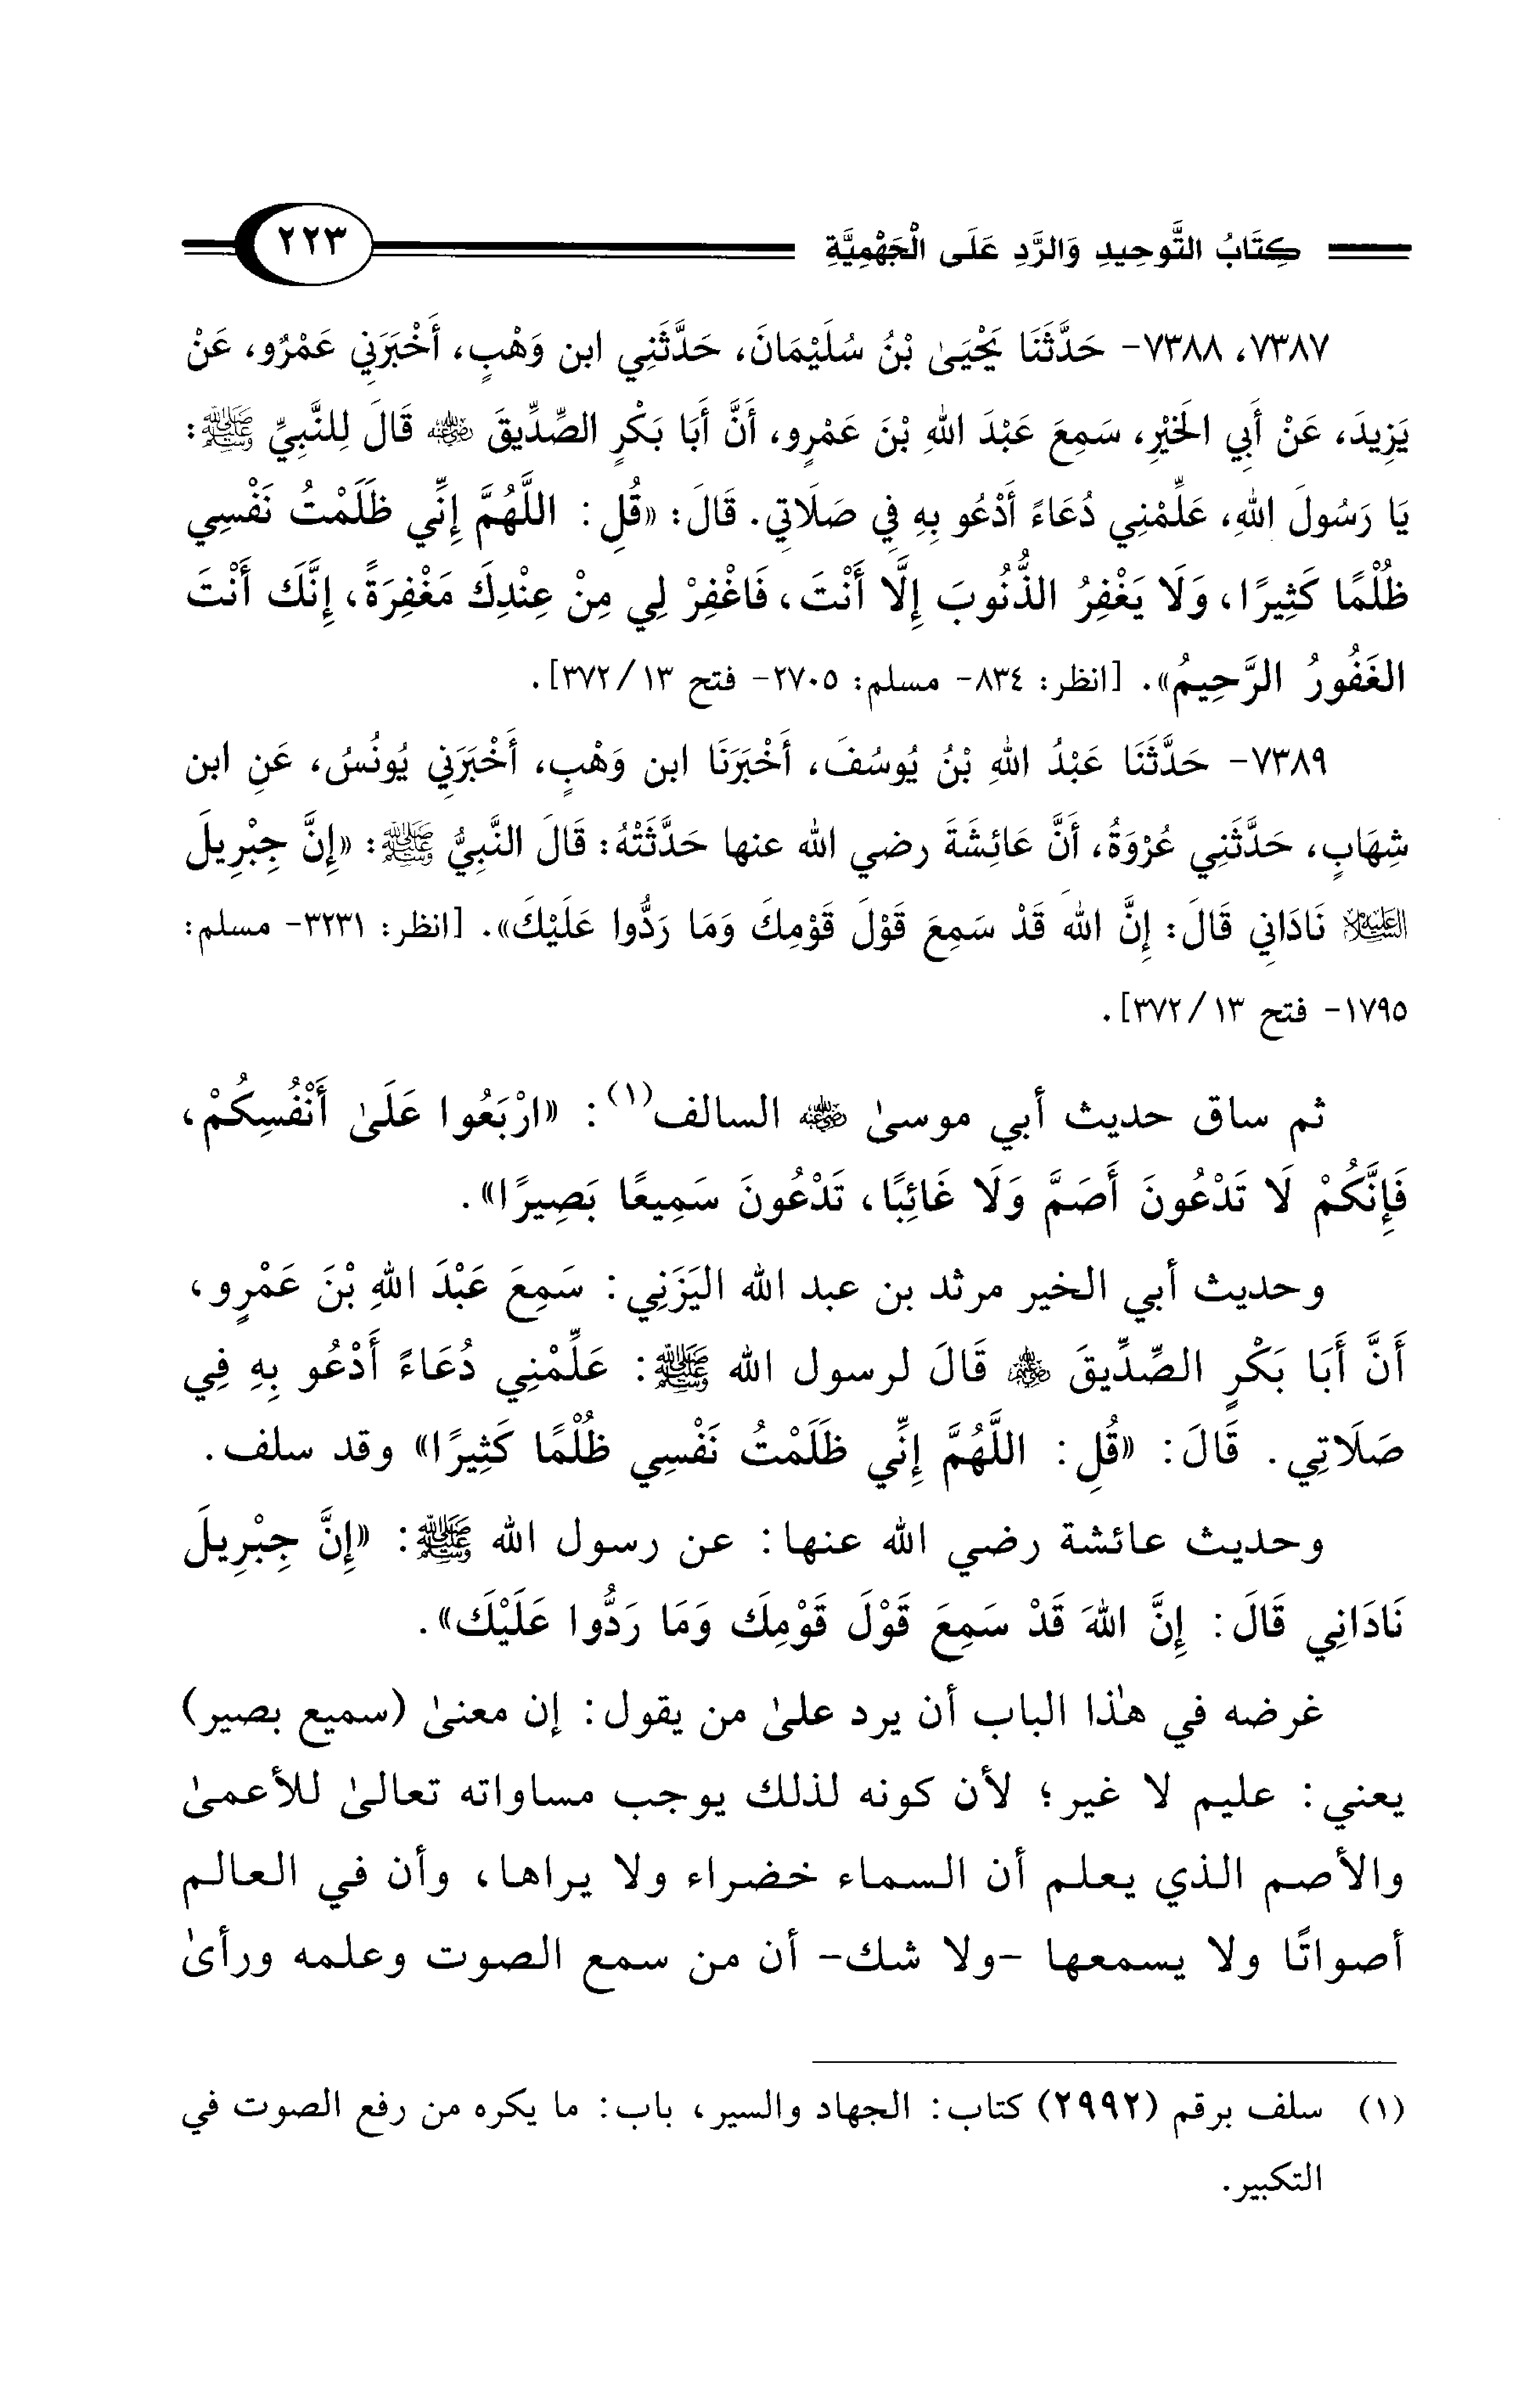 كِتَابُ التَّوحِيدِ وَالرَّدِ عَلَى الْجَهْمِيَّةِ ٢٢٣
٧٣٨٧، ٧٣٨٨- حَدَّثَنَا يَحْيَىٰ بْنُ سُلَيْمَانَ، حَدَّثَنِي ابن وَهْبٍ، أَخْبَرَنِي عَمْرٌو، عَنْ
يَزِيدَ، عَنْ أَبِي الخَيْرِ، سَمِعَ عَبْدَ اللهِ بْنَ عَمْرٍو، أَنَّ أَبَا بَكْرٍ الصِّدِّيقَ رضي الله عنه قَالَ لِلنَّبِيِّ ﷺ:
يَا رَسُولَ اللهِ، عَلِّمْنِي دُعَاءً أَدْعُو بِهِ فِي صَلَاتِي. قَالَ: «قُلِ: اللَّهُمَّ إِنِّي ظَلَمْتُ نَفْسِي
ظُلْمًا كَثِيرًا، وَلَا يَغْفِرُ الذُّنُوبَ إِلَّا أَنْتَ، فَاغْفِرْ لِي مِنْ عِنْدِكَ مَغْفِرَةً، إِنَّكَ أَنْتَ
الغَفُورُ الرَّحِيمُ». [انظر: ٨٣٤- مسلم: ٢٧٠٥- فتح ١٣/ ٣٧٢].
٧٣٨٩- حَدَّثَنَا عَبْدُ اللهِ بْنُ يُوسُفَ، أَخْبَرَنَا ابن وَهْبٍ، أَخْبَرَنِي يُونُسُ، عَنِ ابن
شِهَابٍ، حَدَّثَنِي عُرْوَةُ، أَنَّ عَائِشَةَ رضي الله عنها حَدَّثَتْهُ: قَالَ النَّبِيُّ ﷺ: «إِنَّ جِبْرِيلَ
عليه السلام نَادَانِي قَالَ: إِنَّ اللهَ قَدْ سَمِعَ قَوْلَ قَوْمِكَ وَمَا رَدُّوا عَلَيْكَ». [انظر: ٣٢٣١- مسلم:
١٧٩٥- فتح ١٣/ ٣٧٢].
ثم ساق حديث أبي موسىٰ رضي الله عنه السالف(١): «ارْبَعُوا عَلَىٰ أَنْفُسِكُمْ،
فَإِنَّكُمْ لَا تَدْعُونَ أَصَمَّ وَلَا غَائِبًا، تَدْعُونَ سَمِيعًا بَصِيرًا».
وحديث أبي الخير مرثد بن عبد الله اليَزَنِي: سَمِعَ عَبْدَ اللهِ بْنَ عَمْرٍو،
أَنَّ أَبَا بَكْرٍ الصِّدِّيقَ رضي الله عنه قَالَ لرسول الله ﷺ: عَلِّمْنِي دُعَاءً أَدْعُو بِهِ فِي
صَلَاتِي. قَالَ: «قُلِ: اللَّهُمَّ إِنِّي ظَلَمْتُ نَفْسِي ظُلْمًا كَثِيرًا» وقد سلف.
وحديث عائشة رضي الله عنها: عن رسول الله ﷺ: «إِنَّ جِبْرِيلَ
نَادَانِي قَالَ: إِنَّ اللهَ قَدْ سَمِعَ قَوْلَ قَوْمِكَ وَمَا رَدُّوا عَلَيْكَ».
غرضه في هٰذا الباب أن يرد علىٰ من يقول: إن معنىٰ (سميع بصير)
يعني: عليم لا غير؛ لأن كونه لذلك يوجب مساواته تعالىٰ للأعمىٰ
والأصم الذي يعلم أن السماء خضراء ولا يراها، وأن في العالم
أصواتًا ولا يسمعها -ولا شك- أن من سمع الصوت وعلمه ورأىٰ
(١) سلف برقم (٢٩٩٢) كتاب: الجهاد والسير، باب: ما يكره من رفع الصوت في
التكبير.